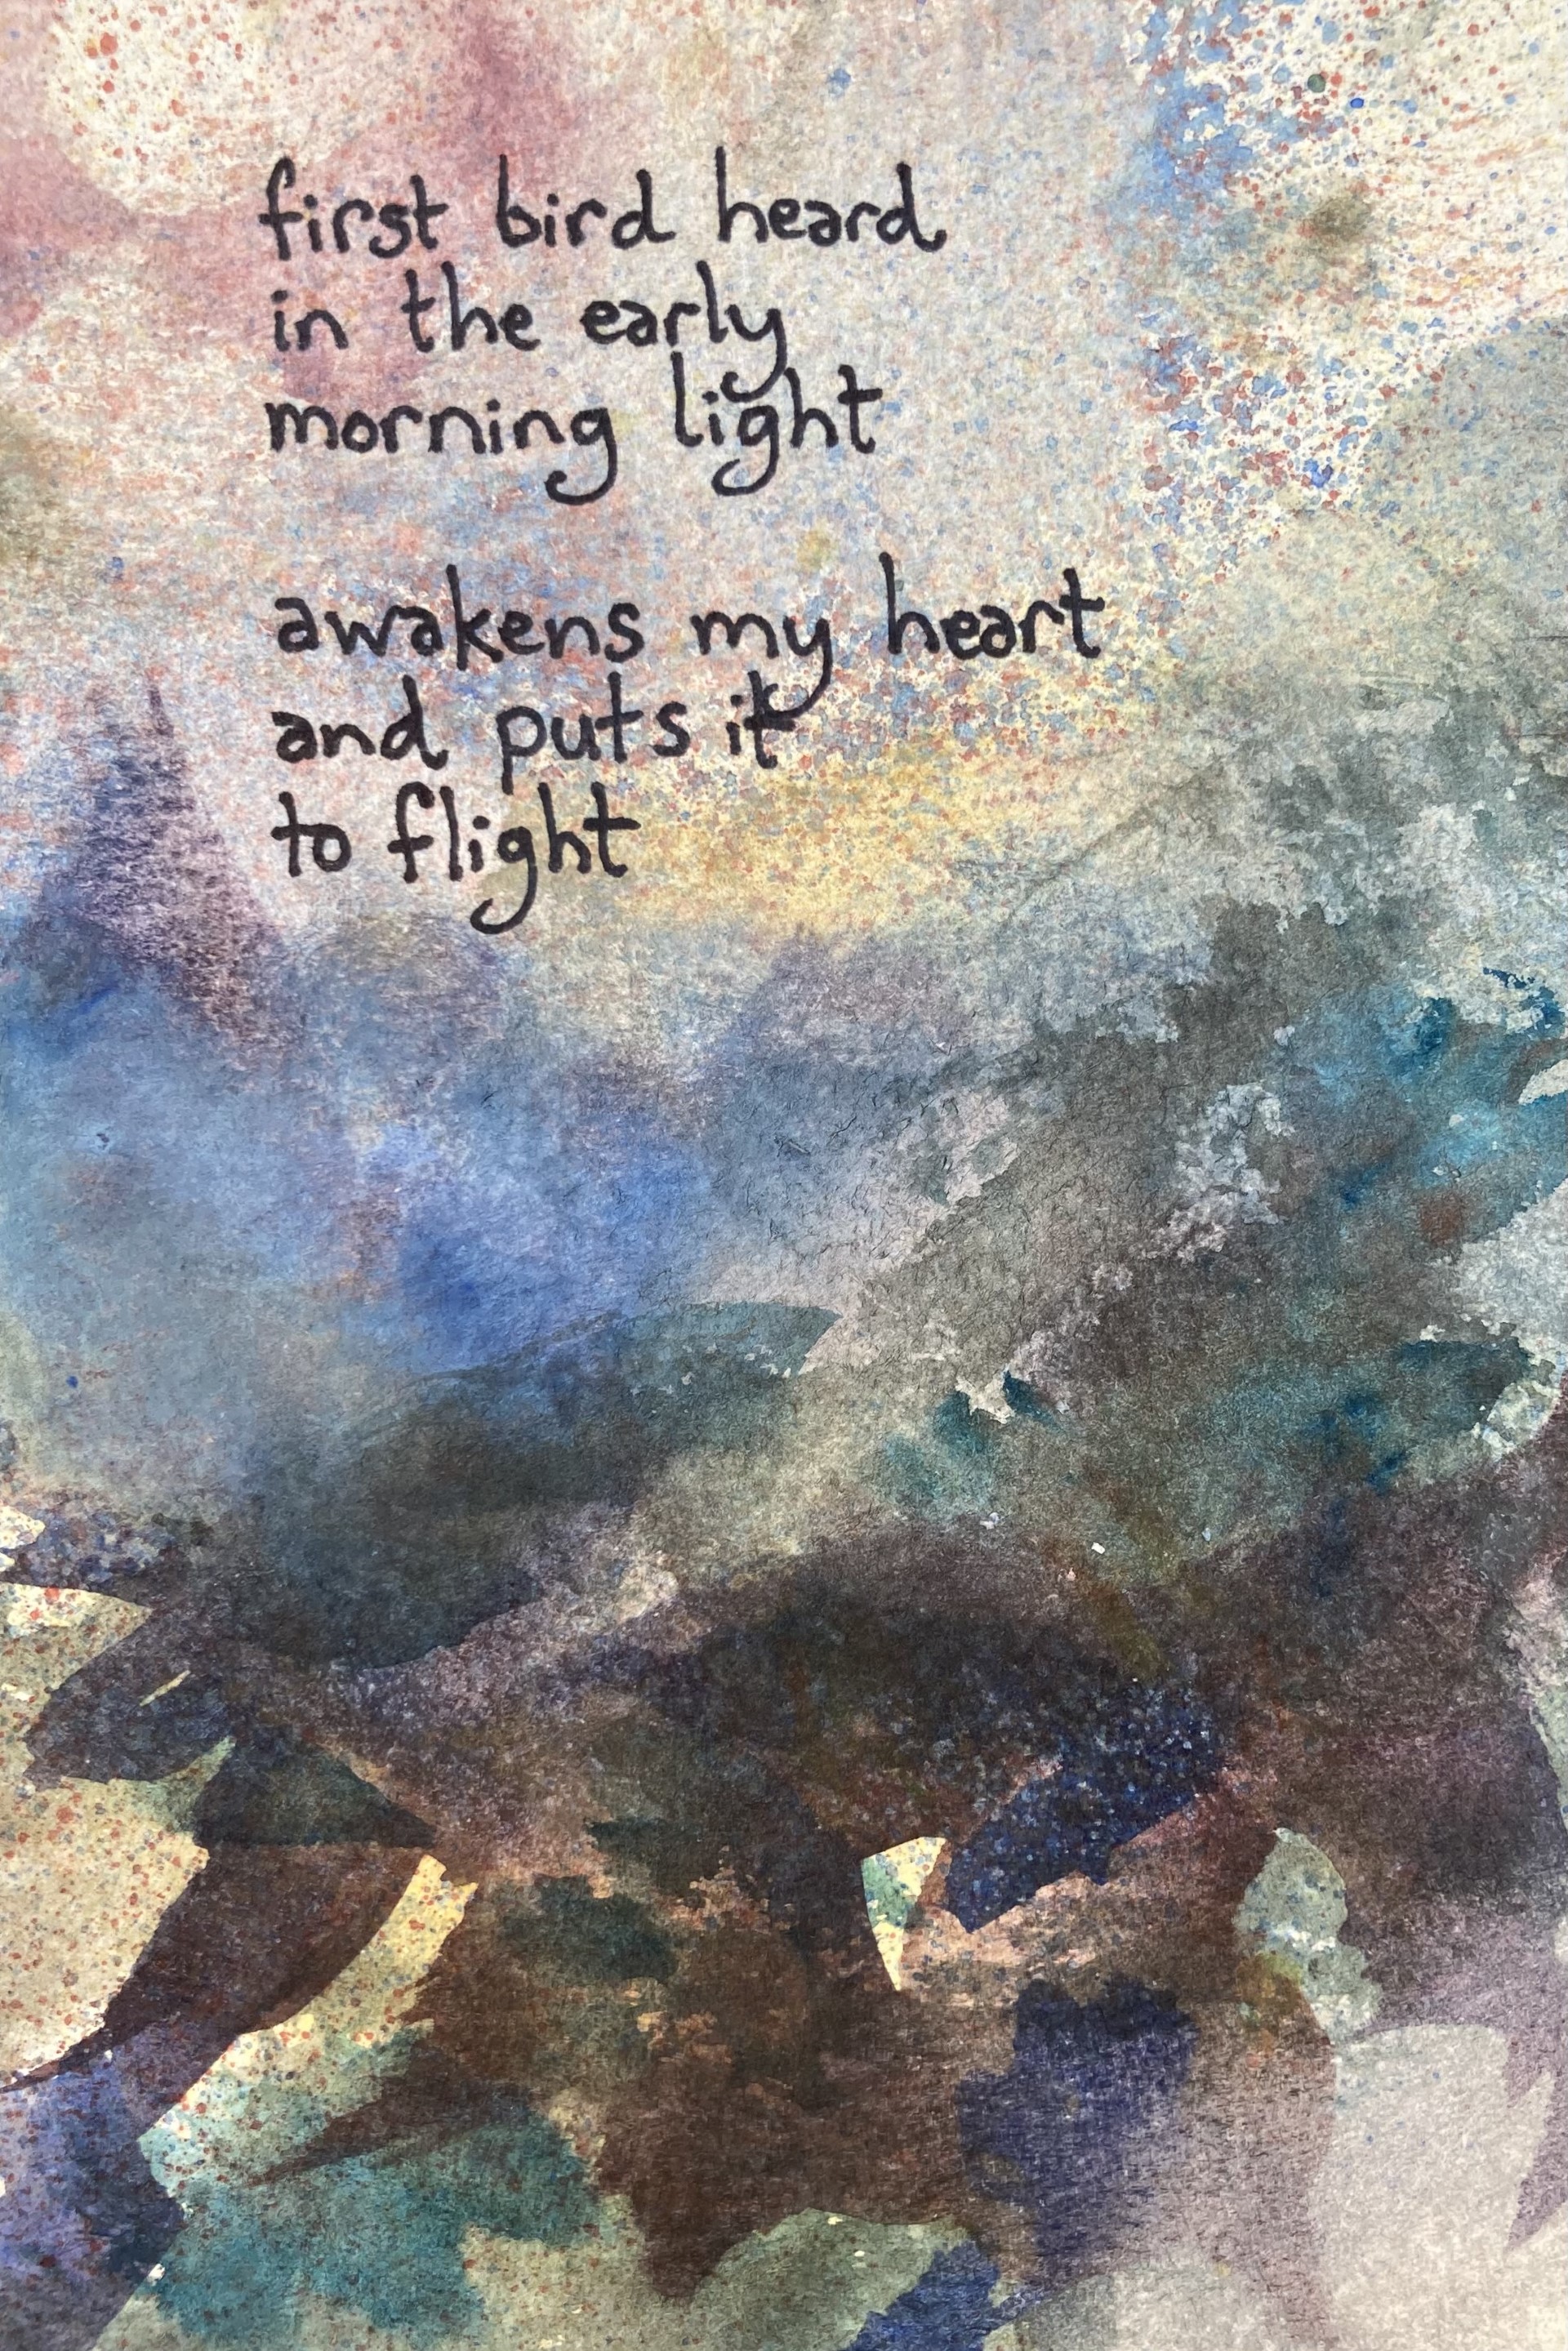 first bird heard
in the early
morning light
awakens my heart
and puts it
to flight